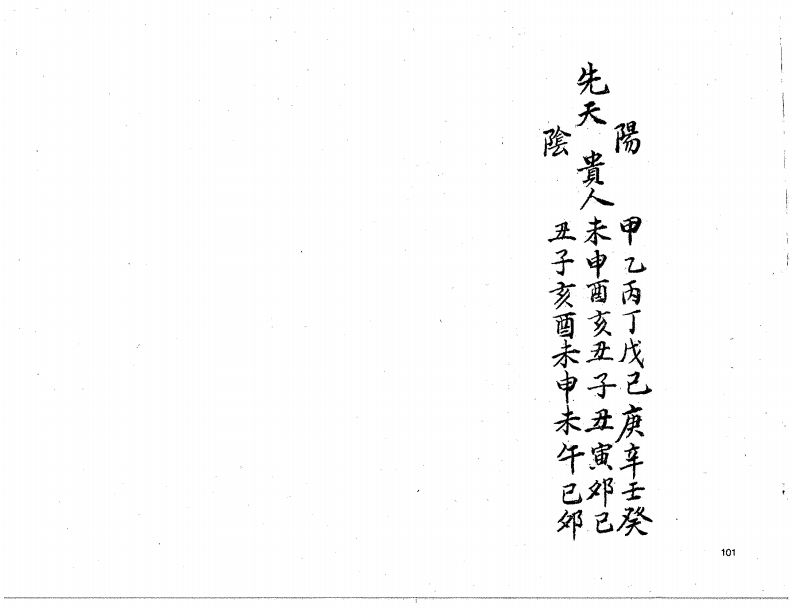 先天貴人
陽
陰
甲乙丙丁戊己庚辛壬癸
未申酉亥丑子丑寅卯巳
丑子亥酉未申未午巳卯
101